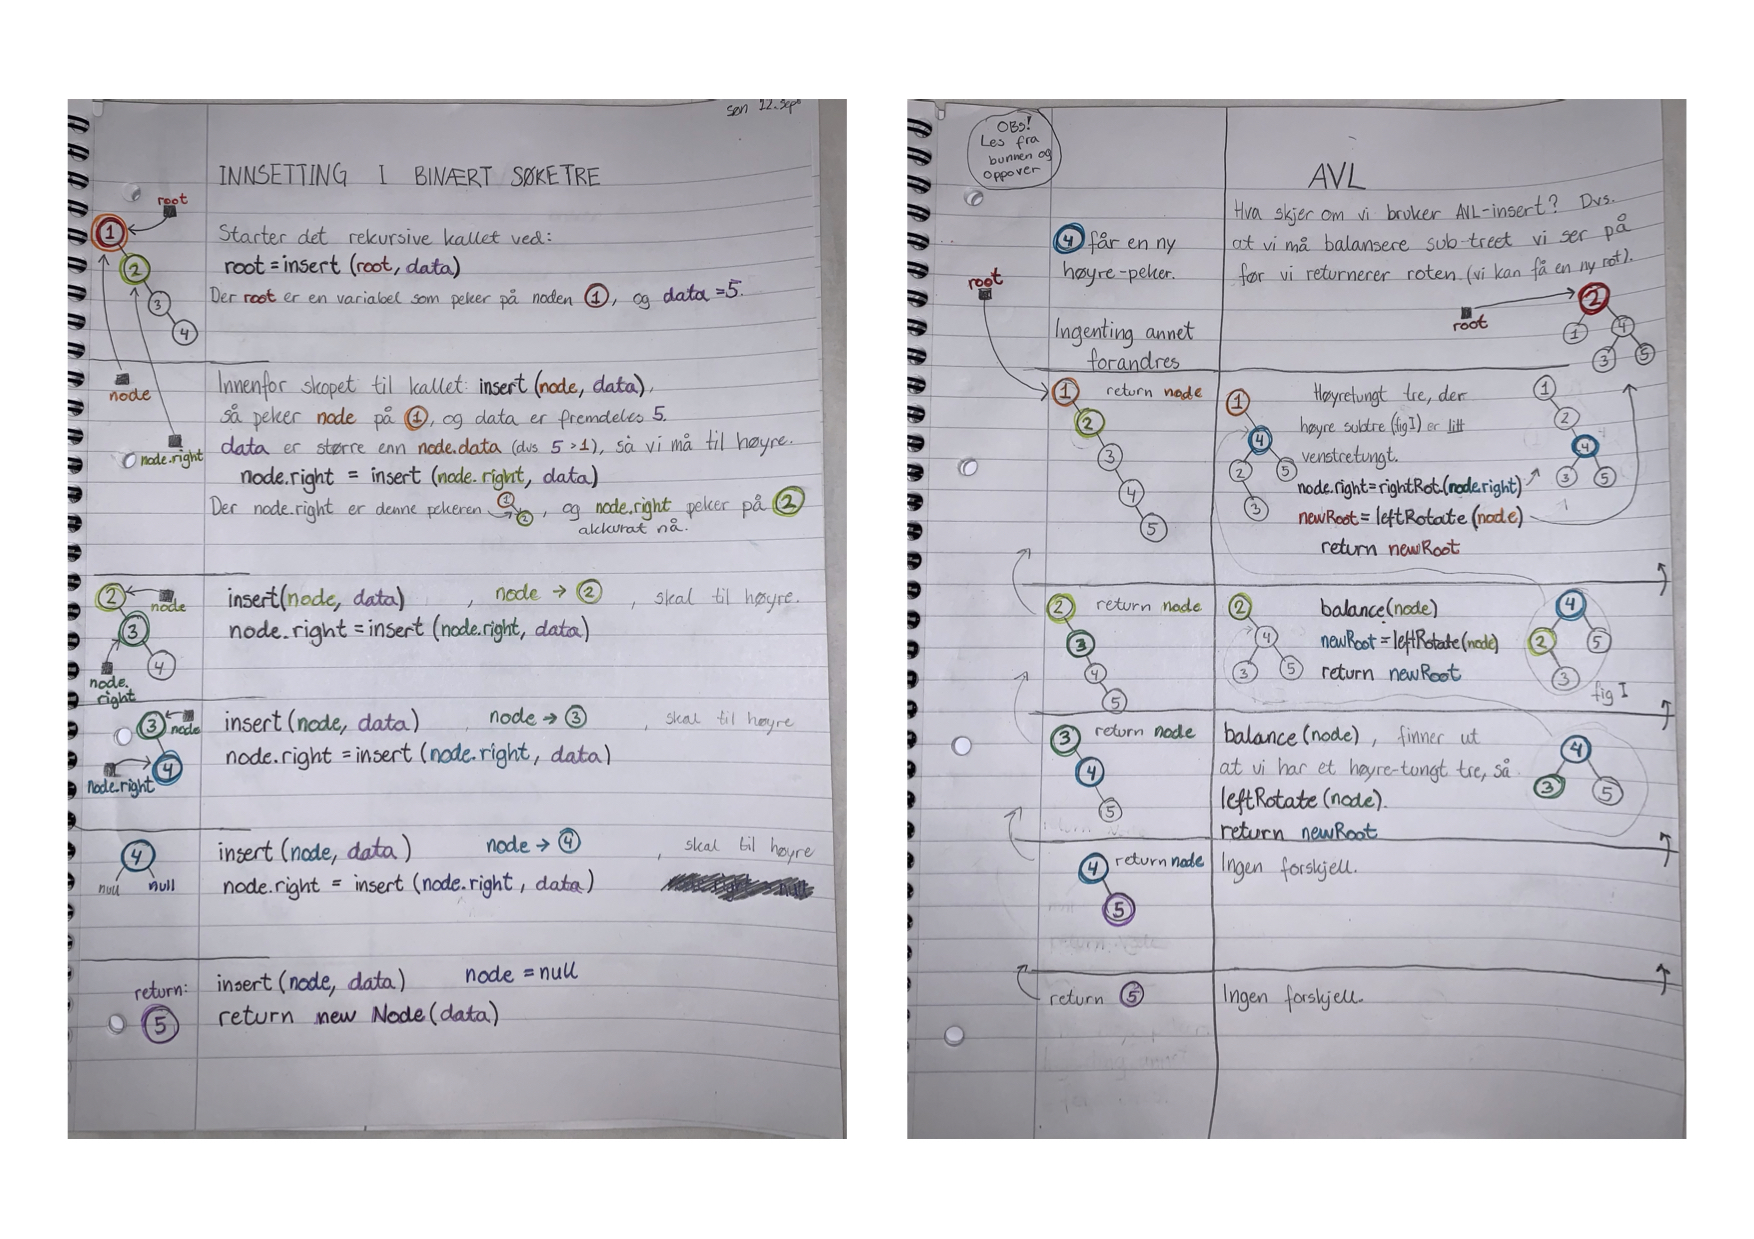 søn 22. sept
INNSETTING I BINÆRT SØKETRE
root
1
2
3
4
Starter det rekursive kallet ved:
root = insert (root, data)
Der root er en variabel som peker på noden 1, og data = 5.
node
node.right
Innenfor skopet til kallet: insert (node, data),
så peker node på 1, og data er fremdeles 5.
data er større enn node.data (dvs 5 > 1), så vi må til høyre.
node.right = insert (node.right, data)
Der node.right er denne pekeren 1 2, og node.right peker på 2
akkurat nå.
2
node
3
4
node.
right
insert(node, data) , node → 2 , skal til høyre.
node.right = insert (node.right, data)
3
node
4
node.right
insert (node, data) node → 3 , skal til høyre
node.right = insert (node.right, data)
4
null null
insert (node, data) node → 4 , skal til høyre
node.right = insert (node.right, data)
return:
5
insert (node, data) node = null
return new Node(data)
OBS!
Les fra
bunnen og
oppover
AVL
4 får en ny
høyre-peker.
Ingenting annet
forandres
root
Hva skjer om vi bruker AVL-insert? Dvs.
at vi må balansere sub-treet vi ser på
før vi returnerer roten. (vi kan få en ny rot).
root
2
1 4
3 5
1 return node
2
3
4
5
1
4
2 5
3
Høyretungt tre, der
høyre subtre (fig I) er litt
venstretungt.
node.right = rightRot.(node.right)
newRoot = leftRotate (node)
return newRoot
1
2
4
3 5
2 return node
3
4
5
2
4
3 5
balance(node)
newRoot = leftRotate(node)
return newRoot
4
2 5
3
fig I
3 return node
4
5
balance (node) , finner ut
at vi har et høyre-tungt tre, så
leftRotate (node).
return newRoot
4
3 5
4 return node
5
Ingen forskjell.
return 5
Ingen forskjell.